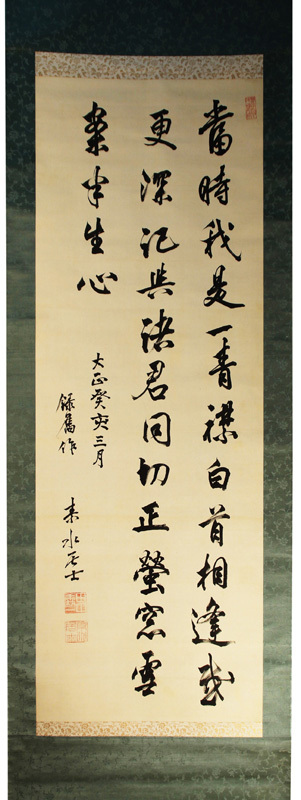 當時我是一青襟白首相逢感
更深記與諸君同切正螢窓雪
案半生心
大正癸亥三月
録舊作
水居士